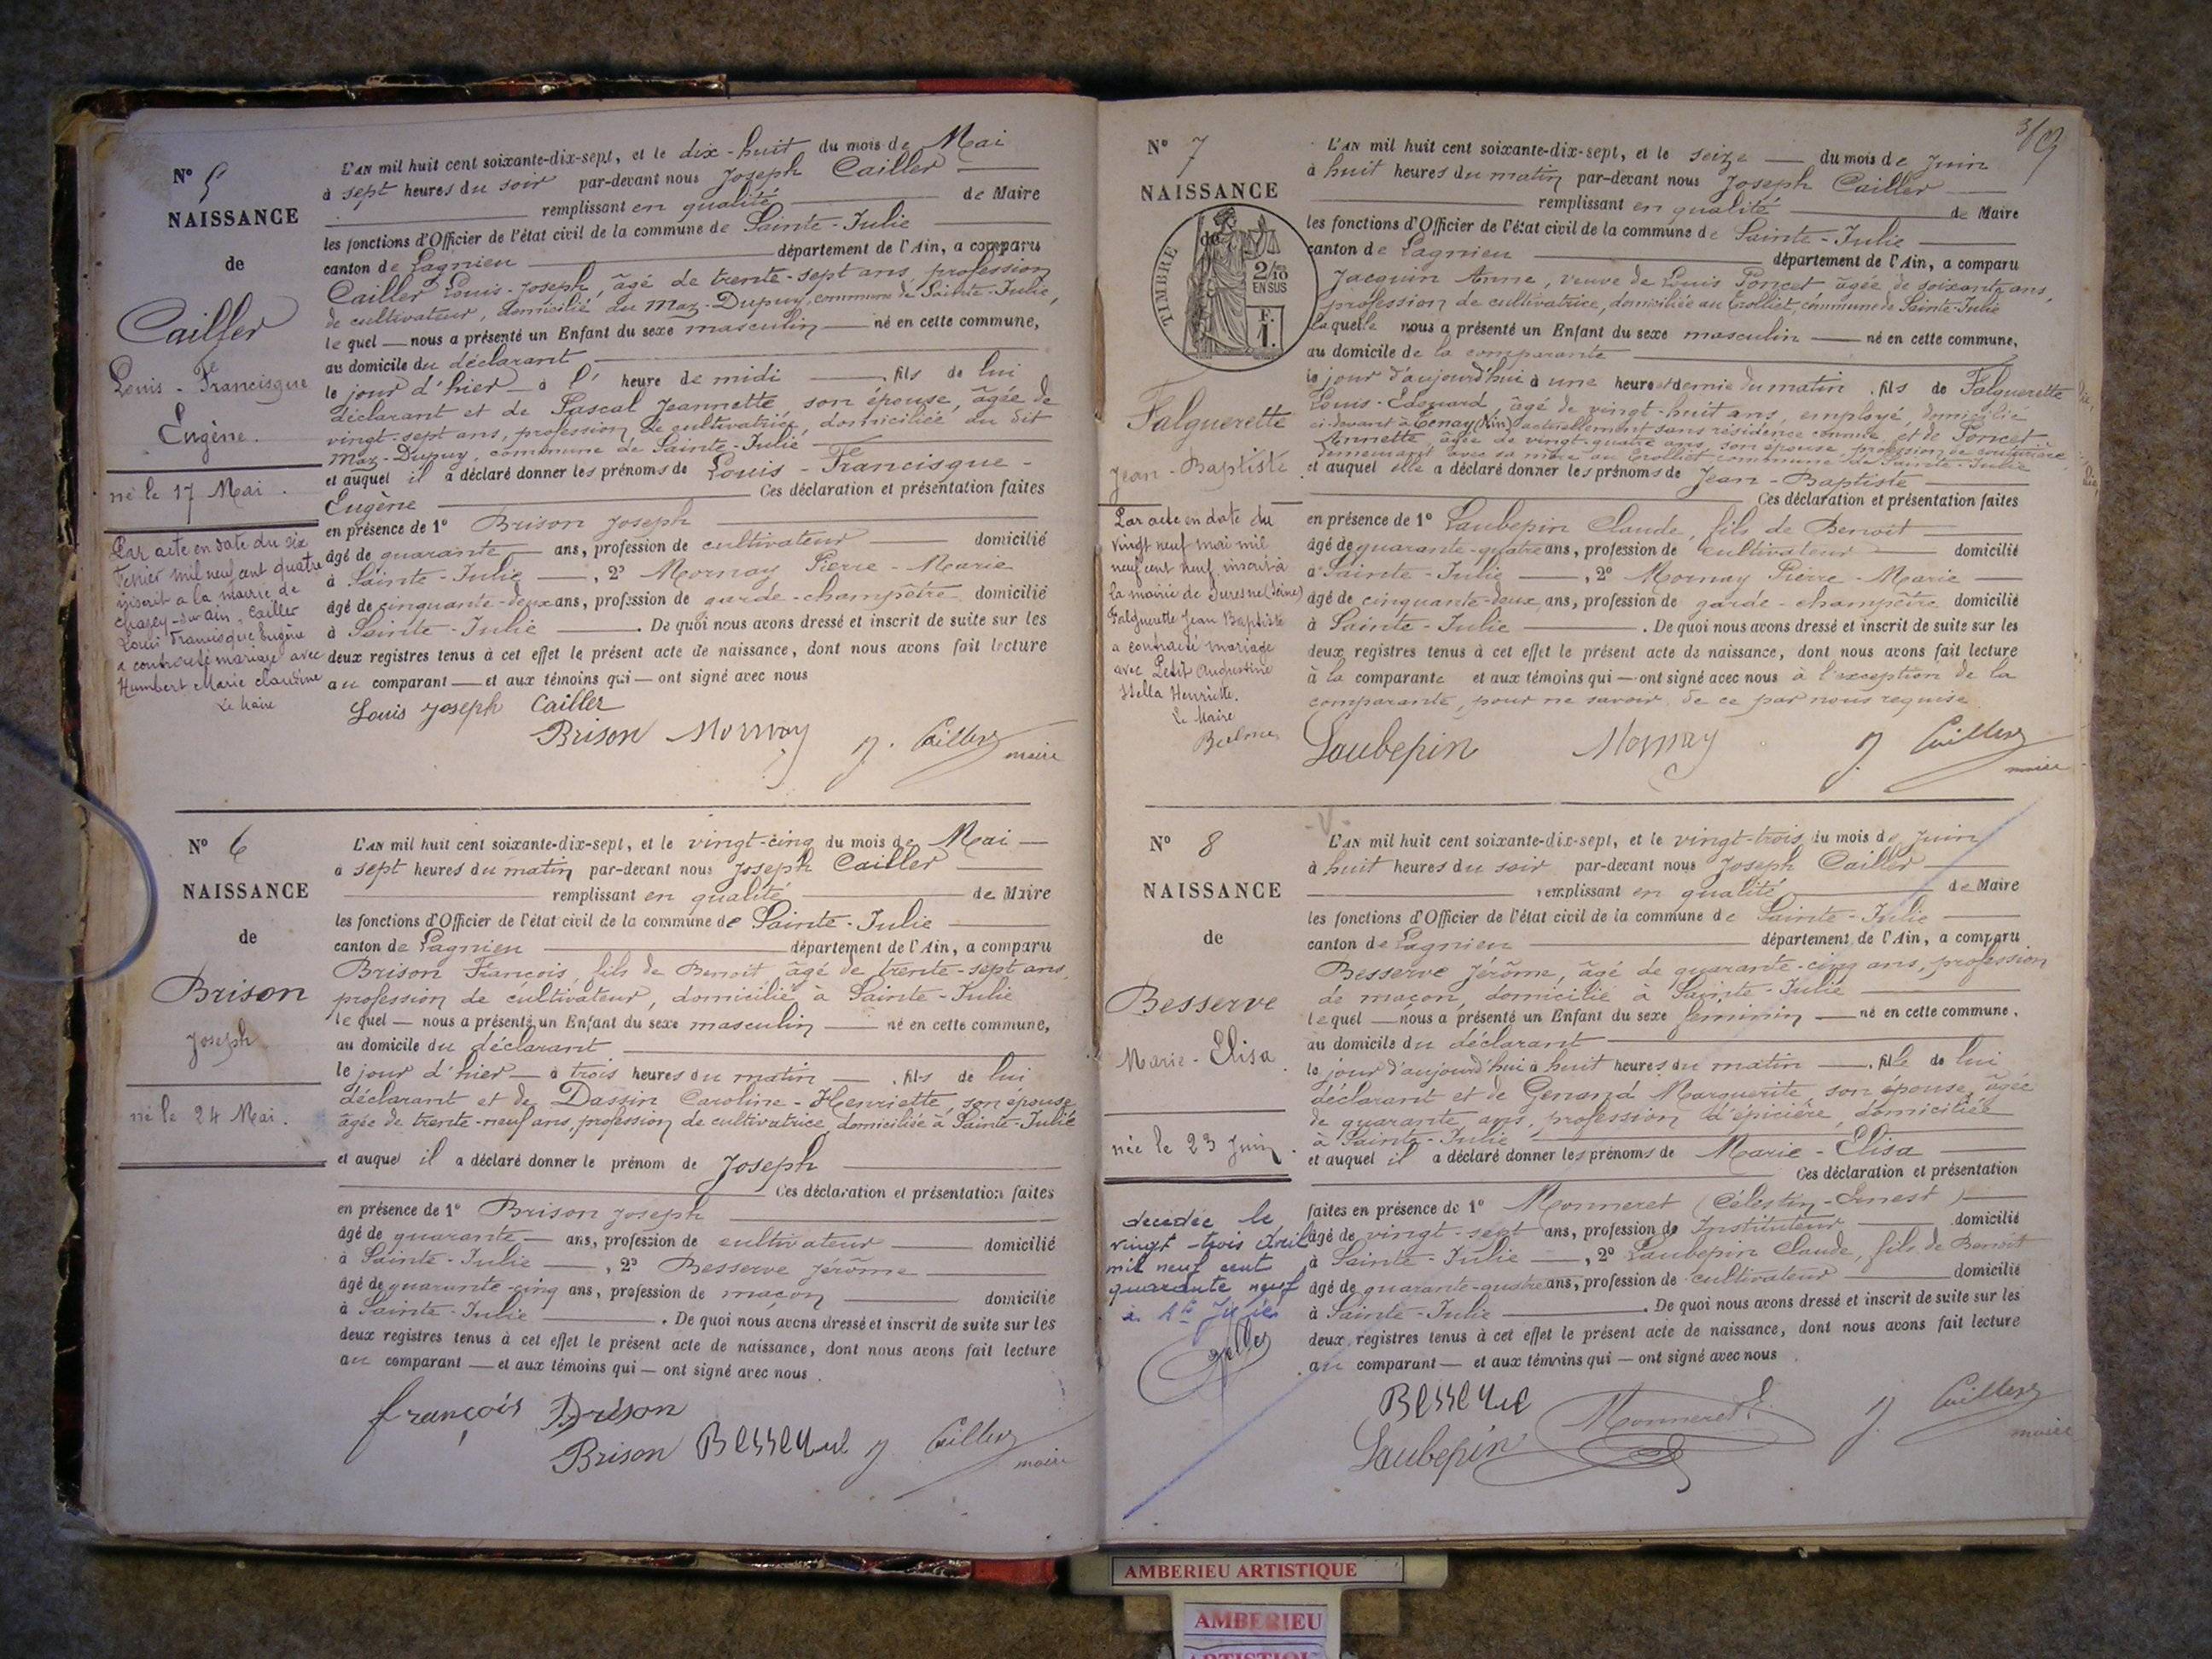 N° 5
NAISSANCE
de
Cailler
Louis-Francisque
Eugène.
né le 17 Mai.
Par acte en date du six
Février mil neuf cent quatre
inscrit à la mairie de
Chazey-sur-Ain, Cailler
Louis Francisque Eugène
a contracté mariage avec
Humbert Marie Claudine
Le Maire
L'AN mil huit cent soixante-dix-sept, et le dix-huit du mois de Mai
à sept heures du soir par-devant nous Joseph Cailler
remplissant en qualité de Maire
les fonctions d'Officier de l'état civil de la commune de Sainte-Julie
canton de Lagnieu département de l'Ain, a comparu
Cailler Louis-Joseph, âgé de trente-sept ans, profession
de cultivateur, domicilié au Maz-Dupuy, commune de Sainte-Julie,
lequel nous a présenté un Enfant du sexe masculin né en cette commune,
au domicile du déclarant
le jour d'hier à l' heure de midi, fils de lui
déclarant et de Pascal Jeannette son épouse, âgée de
vingt-sept ans, profession de cultivatrice, domiciliée au dit
Maz-Dupuy, commune de Sainte-Julie
et auquel il a déclaré donner les prénoms de Louis-Francisque-
Eugène Ces déclaration et présentation faites
en présence de 1° Brison Joseph
âgé de quarante ans, profession de cultivateur domicilié
à Sainte-Julie, 2° Mornay Pierre-Marie
âgé de cinquante-deux ans, profession de garde-champêtre domicilié
à Sainte-Julie. De quoi nous avons dressé et inscrit de suite sur les
deux registres tenus à cet effet le présent acte de naissance, dont nous avons fait lecture
au comparant et aux témoins qui ont signé avec nous
Louis Joseph Cailler
Brison Mornay J. Cailler
maire
N° 6
NAISSANCE
de
Brison
Joseph
né le 24 Mai.
L'AN mil huit cent soixante-dix-sept, et le vingt-cinq du mois de Mai
à sept heures du matin par-devant nous Joseph Cailler
remplissant en qualité de Maire
les fonctions d'Officier de l'état civil de la commune de Sainte-Julie
canton de Lagnieu département de l'Ain, a comparu
Brison François, fils de Benoit, âgé de trente-sept ans,
profession de cultivateur, domicilié à Sainte-Julie
lequel nous a présenté un Enfant du sexe masculin né en cette commune,
au domicile du déclarant
le jour d'hier à trois heures du matin, fils de lui
déclarant et de Dassin Caroline-Henriette, son épouse
âgée de trente-neuf ans, profession de cultivatrice, domiciliée à Sainte-Julie
et auquel il a déclaré donner le prénom de Joseph
Ces déclaration et présentation faites
en présence de 1° Brison Joseph
âgé de quarante ans, profession de cultivateur domicilié
à Sainte-Julie, 2° Besserve Jérôme
âgé de quarante-cinq ans, profession de maçon domicilié
à Sainte-Julie. De quoi nous avons dressé et inscrit de suite sur les
deux registres tenus à cet effet le présent acte de naissance, dont nous avons fait lecture
au comparant et aux témoins qui ont signé avec nous.
françois Brison
Brison Besserve J. Cailler
maire
N° 7
NAISSANCE
de
TIMBRE
2/10
EN SUS
F.
1.
Falguerette
Jean-Baptiste
Par acte en date du
vingt neuf mai mil
neuf cent neuf inscrit à
la mairie de Suresne (Seine)
Falguerette Jean Baptiste
a contracté mariage
avec Petit Augustine
Stella Henriette.
Le Maire
L'AN mil huit cent soixante-dix-sept, et le seize du mois de Juin
à huit heures du matin par-devant nous Joseph Cailler
remplissant en qualité de Maire
les fonctions d'Officier de l'état civil de la commune de Sainte-Julie
canton de Lagnieu département de l'Ain, a comparu
Jacquin Anne, veuve de Louis Poncet âgée de soixante ans,
profession de cultivatrice, domiciliée au Trolliet, commune de Sainte-Julie
laquelle nous a présenté un Enfant du sexe masculin né en cette commune,
au domicile de la comparante
le jour d'aujourd'hui à une heure et demie du matin, fils de Falguerette
Louis-Edouard, âgé de vingt-huit ans, employé, domicilié
ci-devant à Tenay (Ain) actuellement sans résidence connue, et de Poncet
Annette, âgée de vingt-quatre ans, son épouse, profession de couturière
demeurant avec sa mère au Trolliet commune de Sainte-Julie
et auquel elle a déclaré donner les prénoms de Jean-Baptiste
Ces déclaration et présentation faites
en présence de 1° Laubepin Claude, fils de Benoit
âgé de quarante-quatre ans, profession de cultivateur domicilié
à Sainte-Julie, 2° Mornay Pierre-Marie
âgé de cinquante-deux ans, profession de garde-champêtre domicilié
à Sainte-Julie. De quoi nous avons dressé et inscrit de suite sur les
deux registres tenus à cet effet le présent acte de naissance, dont nous avons fait lecture
à la comparante et aux témoins qui ont signé avec nous à l'exception de la
comparante, pour ne savoir, de ce par nous requise
Laubepin Mornay J. Cailler
maire
N° 8
NAISSANCE
de
Besserve
Marie-Elisa.
née le 23 Juin.
décédée le
vingt-trois Avril
mil neuf cent
quarante neuf
à Ste Julie
L'AN mil huit cent soixante-dix-sept, et le vingt-trois du mois de Juin
à huit heures du soir par-devant nous Joseph Cailler
remplissant en qualité de Maire
les fonctions d'Officier de l'état civil de la commune de Sainte-Julie
canton de Lagnieu département de l'Ain, a comparu
Besserve Jérôme, âgé de quarante-cinq ans, profession
de maçon, domicilié à Sainte-Julie
lequel nous a présenté un Enfant du sexe féminin né en cette commune,
au domicile du déclarant
le jour d'aujourd'hui à huit heures du matin, fille de lui
déclarant et de Marguerite, son épouse, âgée
de quarante ans, profession d'épicière, domiciliée
à Sainte-Julie
et auquel il a déclaré donner les prénoms de Marie-Elisa
Ces déclaration et présentation
faites en présence de 1° Monneret (Célestin-Ernest)
âgé de vingt-sept ans, profession de Instituteur domicilié
à Sainte-Julie, 2° Laubepin Claude, fils de Benoit
âgé de quarante-quatre ans, profession de cultivateur domicilié
à Sainte-Julie. De quoi nous avons dressé et inscrit de suite sur les
deux registres tenus à cet effet le présent acte de naissance, dont nous avons fait lecture
au comparant et aux témoins qui ont signé avec nous.
Besserve Monneret J. Cailler
Laubepin maire
AMBERIEU ARTISTIQUE
AMBERIEU
ARTISTIQUE